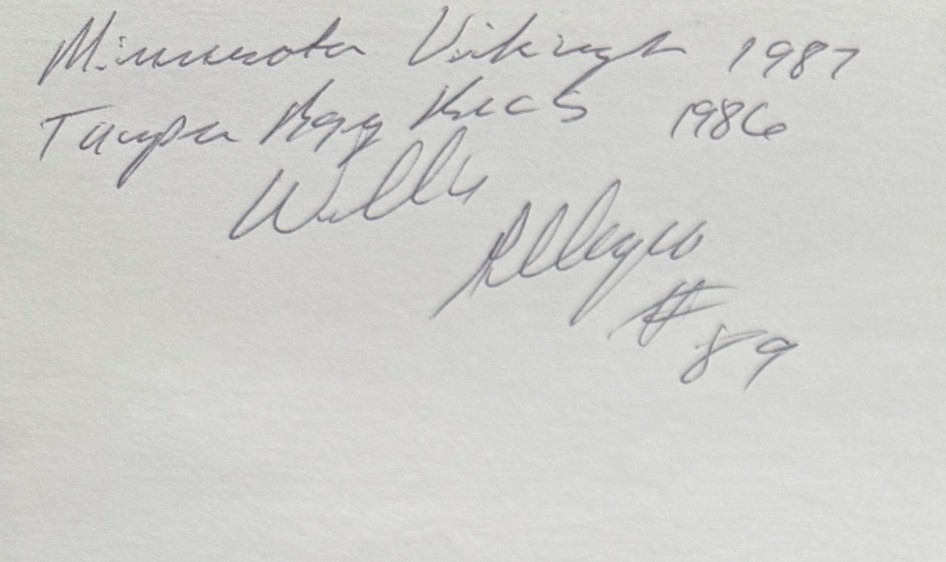 Minnesota Vikings 1987
Tampa Bay Bucs 1986
Willie
#89